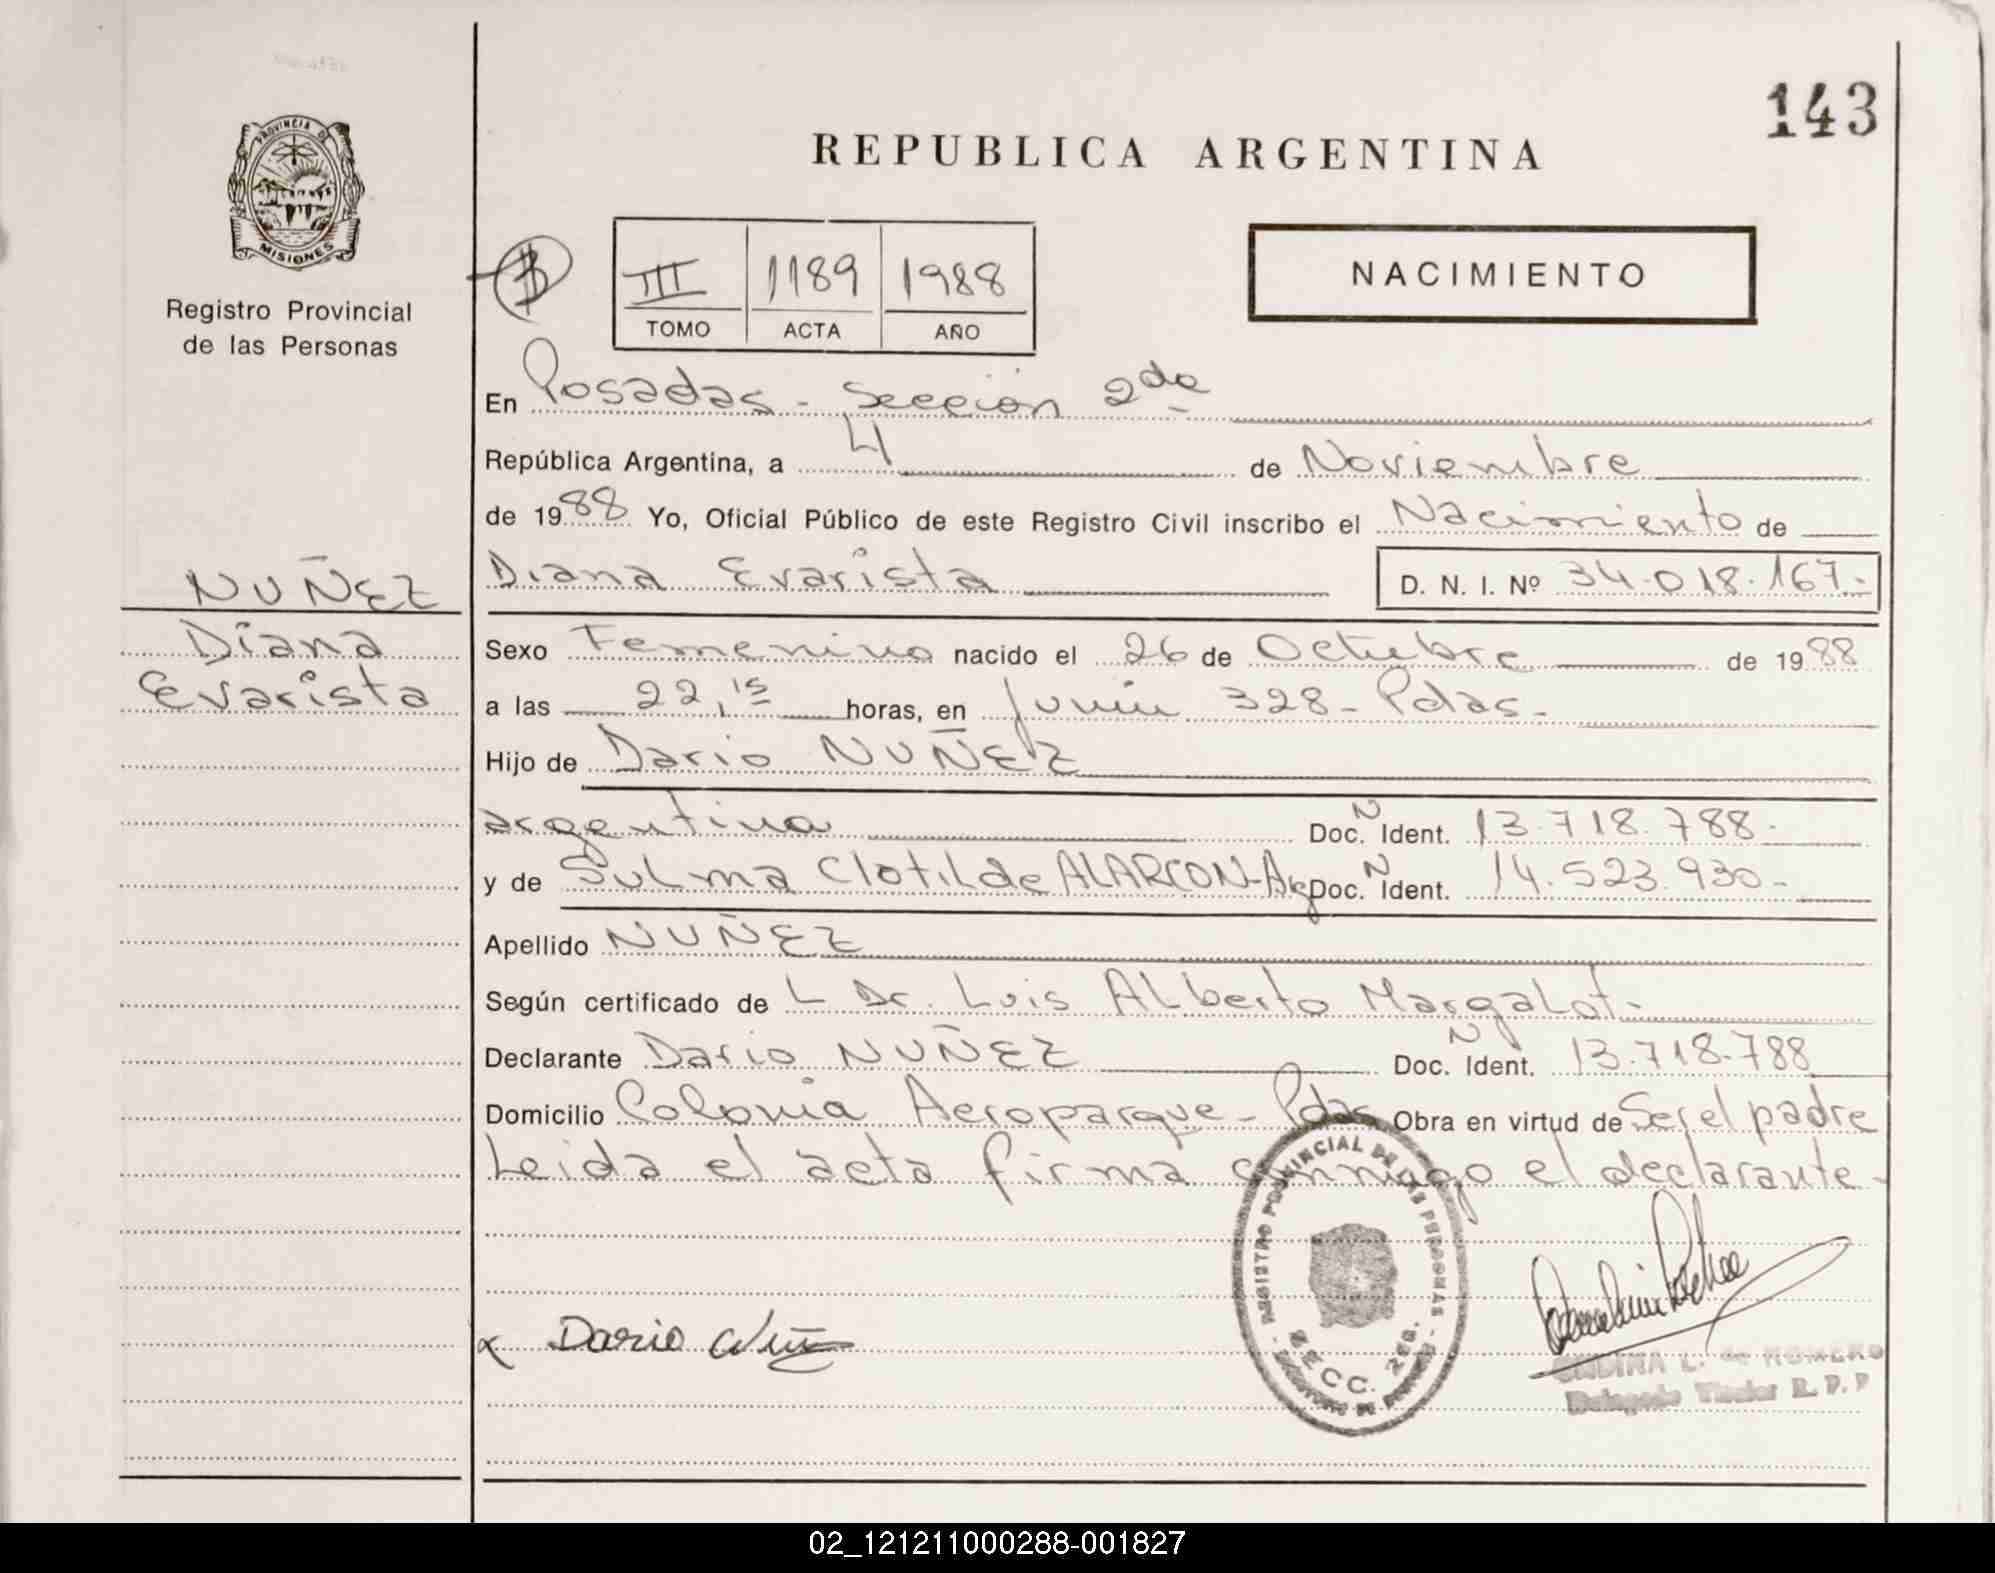 143
PROVINCIA DE
MISIONES
Registro Provincial
de las Personas
REPUBLICA ARGENTINA
III 1189 1988
TOMO ACTA AÑO
NACIMIENTO
En Posadas - Sección 2da
República Argentina, a 4 de Noviembre
de 1988 Yo, Oficial Público de este Registro Civil inscribo el Nacimiento de
Diana Evarista D. N. I. Nº 34.018.167.-
NUÑEZ
Diana
Evarista
Sexo Femenino nacido el 26 de Octubre de 1988
a las 22,15 horas, en Junín 328 - Pdas.-
Hijo de Dario NUÑEZ
argentina Doc. N Ident. 13.718.788.
y de Sulma Clotilde ALARCON-Arg Doc. N Ident. 14.523.930-
Apellido NUÑEZ
Según certificado de L Dr. Luis Alberto Margalot-
Declarante Dario NUÑEZ Doc. N Ident. 13.718.788
Domicilio Colonia Aeroparque - Pdas Obra en virtud de Ser el padre
Leida el acta firma conmigo el declarante-
REGISTRO PROVINCIAL DE LAS PERSONAS
SECC. 2da.
Dario Nuñ
L. de ROMERO
Delegado Titular R. P. P
02_121211000288-001827